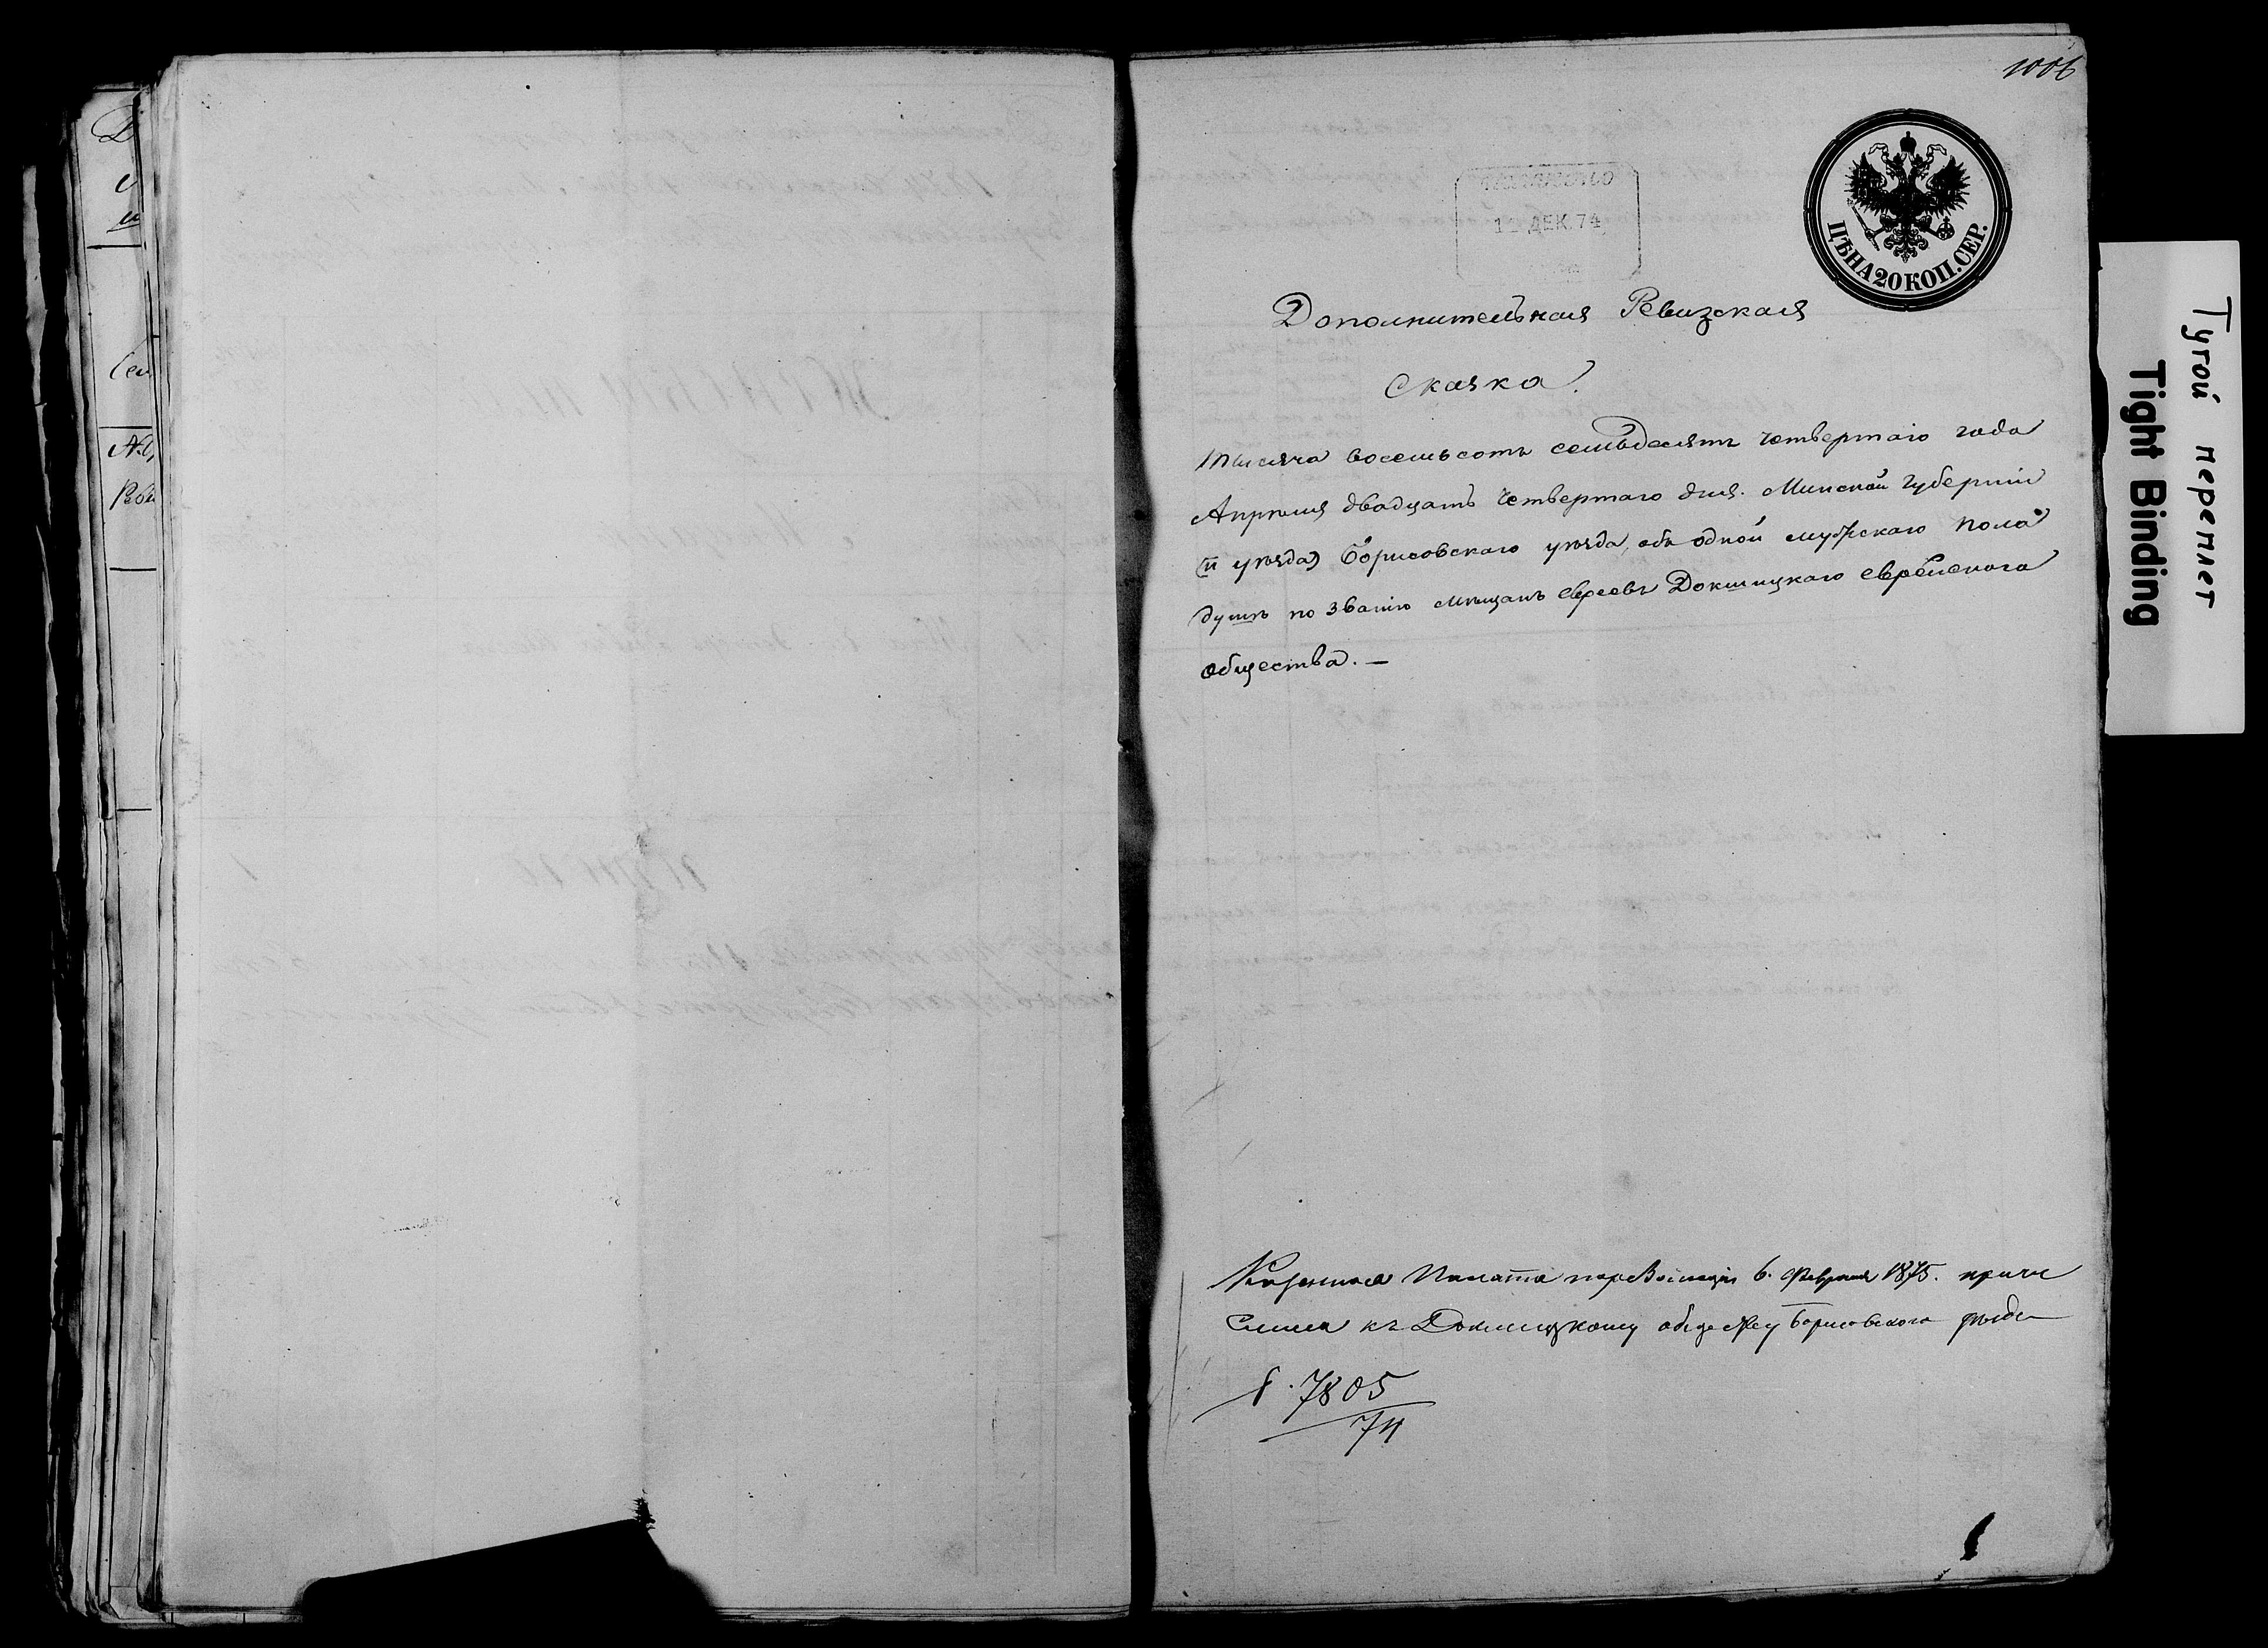 1006
ЦѢНА 20 КОП. СЕР.
12 ДЕК. 74
Дополнительная Ревизская
Сказка.
Тысяча восемьсотъ семьдесятъ четвертаго года
Апрѣля двадцать четвертаго дня. Минской Губерніи
(и уѣзда) Борисовскаго уѣзда, объ одной мужскаго пола
душѣ по званію мѣщанъ евреевъ Докшицкаго еврейскаго
общества.—
Казенная Палата 6. Февраля 1875. причи
слила къ Докшицкому обществу Борисовскаго уѣзда
7805
74
Тугой переплет
Tight Binding